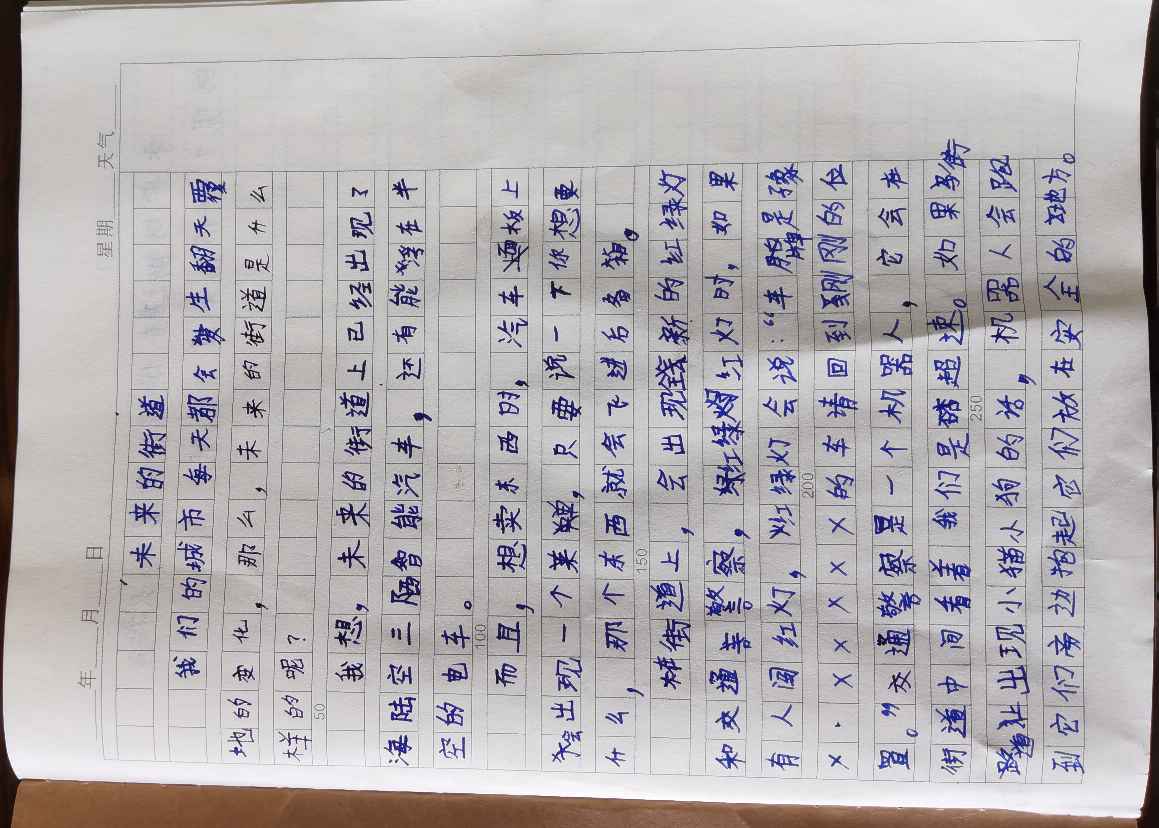 年 月 日 星期 天气
未来的街道
我们的城市每天都会发生翻天覆
地的变化，那么，未来的街道是什么
样的呢？
50
我想，未来的街道上已经出现了
海陆空三 智能汽车，还有能 在半
空的电车。
100
而且，想卖东西时，汽车 板上
会出现一个菜单，只要说一下你想要
什么，那个东西就会飞进后备箱。
150
街道上，会出现 新的红绿灯
和交通 警察，红绿 红灯时，如果
有人闯红灯，红绿灯会说：“车牌是豫
×·×××××的车请回到刚刚的位
200
置。”交通警察是一个机器人，它会在
街道中间看着我们是 超速。如果马街
250
道 出现小猫小狗的话，机器人会跑
到它们旁边抱起它们放在安全的地方。